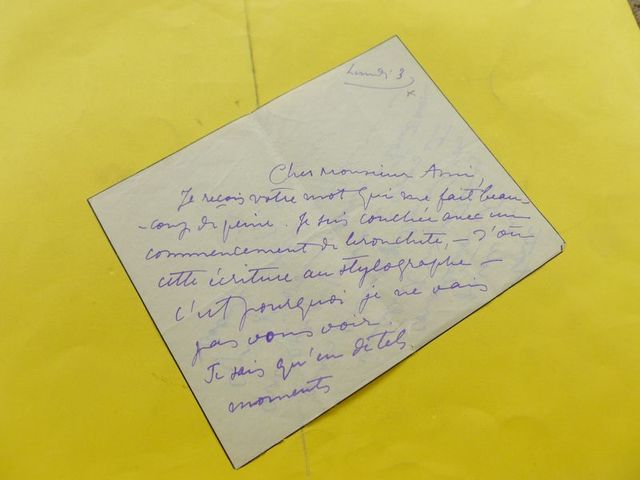 Lundi 3
Cher Monsieur Ami,
Je reçois votre mot qui me fait beau-
-coup de peine. Je suis couchée avec un
commencement de bronchite, – d'où
cette écriture au stylographe –
c'est pourquoi je ne vais
pas vous voir.
Je sais qu'en de tels
moments